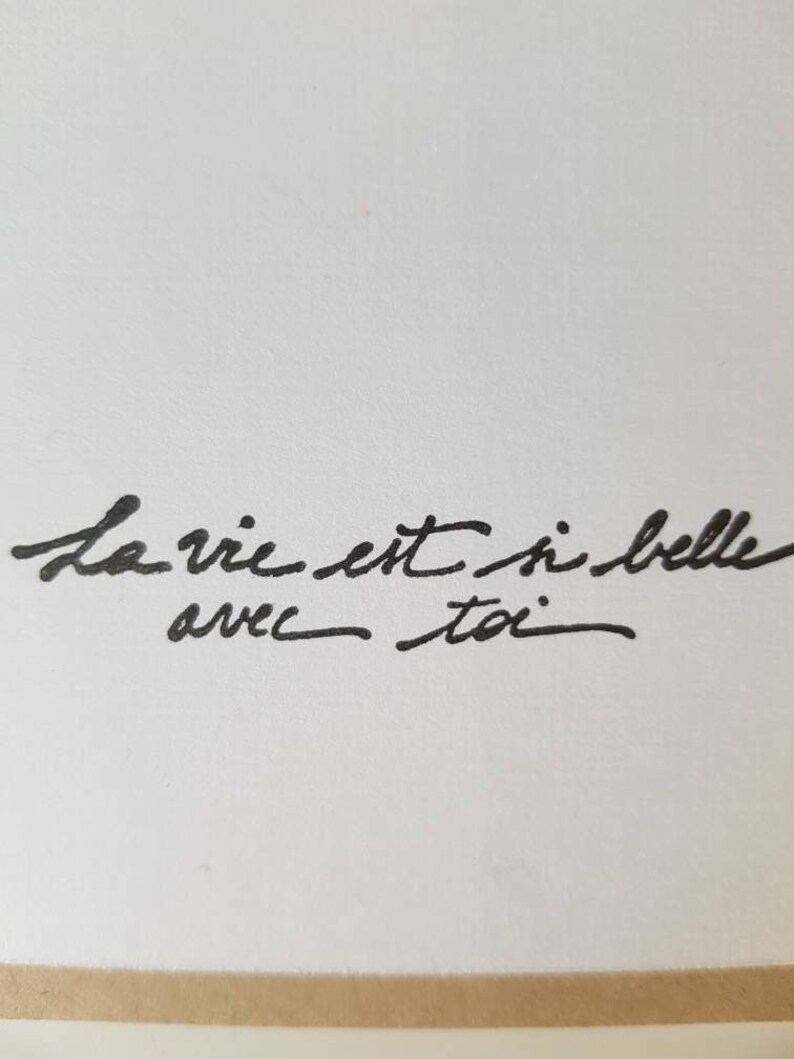 La vie est si belle
avec toi